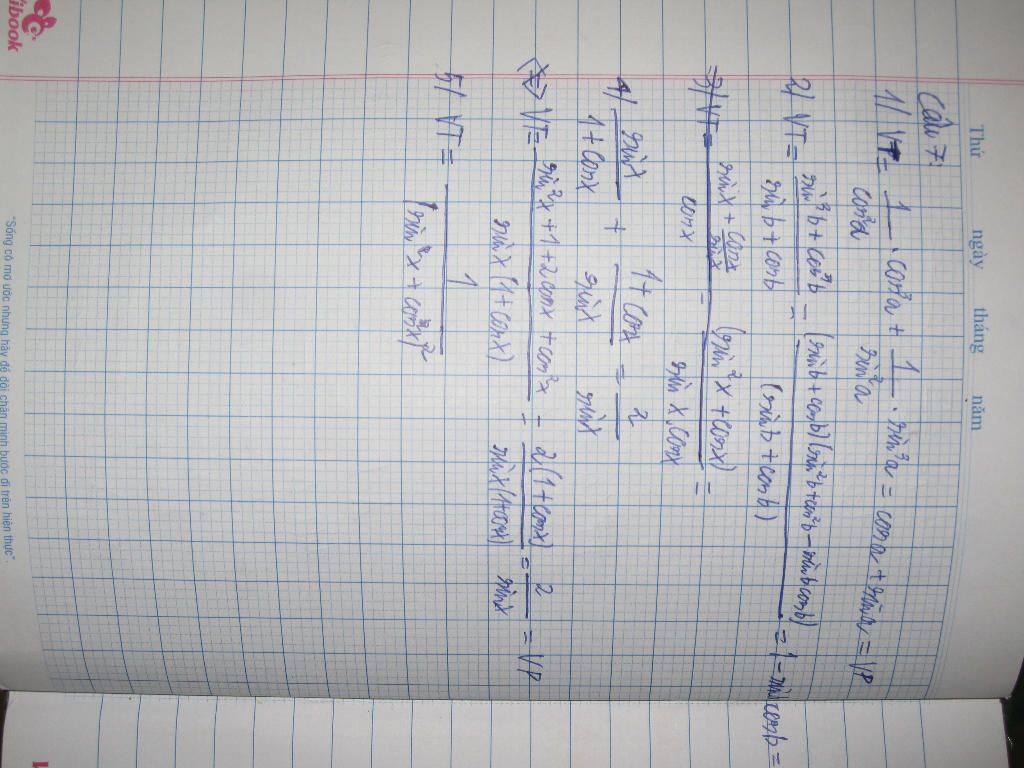 ibook
Thứ ngày tháng năm
Câu 7:
1/ VT = 1/cos²a . cos³a + 1/sin²a . sin³a = cosa + sina = VP
2/ VT = sin³b + cos³b / sinb + cosb = (sinb + cosb)(sin²b + cos²b - sinbcosb) / (sinb + cosb) = 1 - sinbcosb =
3/ VT = sinx + cosx/sinx / cosx = (sin²x + cosx) / sinx.cosx =
4/ sinx / 1 + cosx + 1 + cosx / sinx = 2 / sinx
<=> VT = sin²x + 1 + 2cosx + cos²x / sinx(1 + cosx) = 2(1 + cosx) / sinx(1 + cosx) = 2 / sinx = VP
5/ VT = 1
"Sống có mơ ước nhưng hãy để đôi chân mình bước đi trên hiện thực".